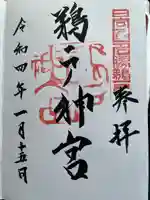 奉拝
鵜戸神宮
令和四年一月十五日